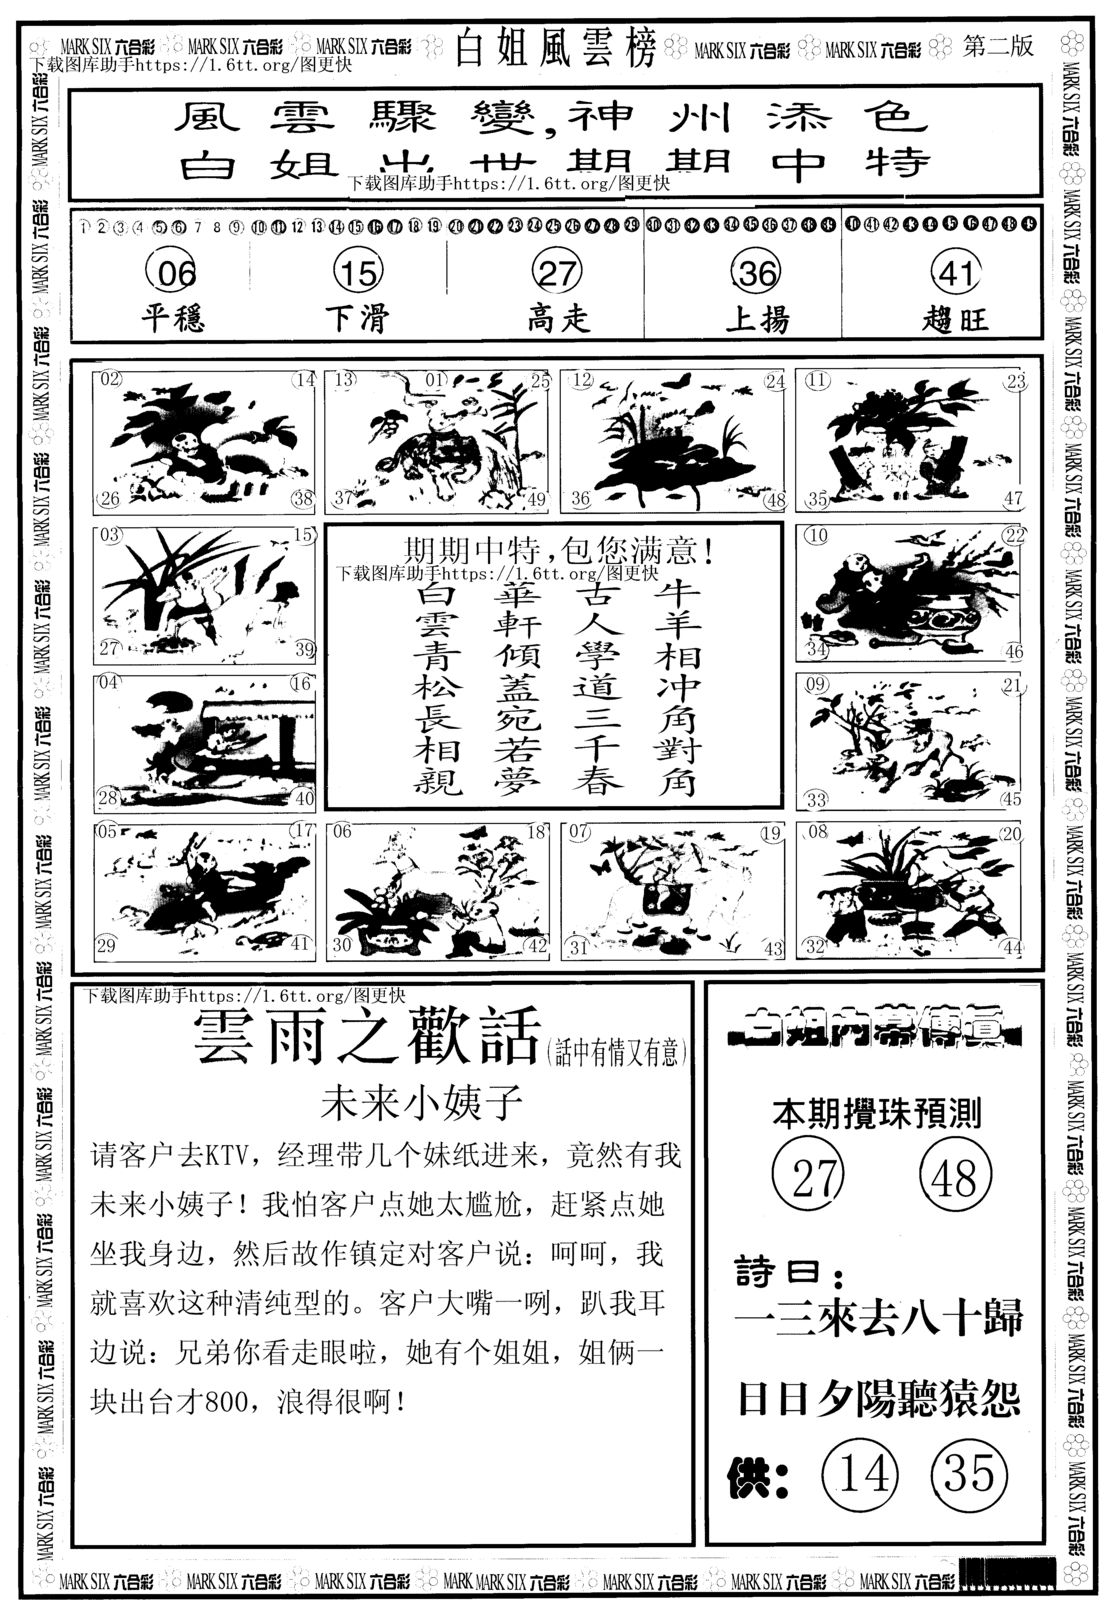 MARK SIX 六合彩 MARK SIX 六合彩 MARK SIX 六合彩 白姐風雲榜 MARK SIX 六合彩 MARK SIX 六合彩 第二版
下载图库助手https://1.6tt.org/图更快
風雲驟變,神州添色
白姐出世期期中特
下载图库助手https://1.6tt.org/图更快
1 2 3 4 5 6 7 8 9 10 11 12 13 14 15 16 17 18 19 20 21 22 23 24 25 26 27 28 29 30 31 32 33 34 35 36 37 38 39 40 41 42 43 44 45 46 47 48 49
06 15 27 36 41
平穩 下滑 高走 上揚 趨旺
02 14 13 01 25 12 24 11 23
26 38 37 49 36 48 35 47
03 15
27 39
04 16
28 40
期期中特,包您满意!
下载图库助手https://1.6tt.org/图更快
牛羊相冲角對角
古人學道三千春
華軒傾蓋宛若夢
白雲青松長相親
10 22
34 46
09 21
33 45
05 17 06 18 07 19 08 20
29 41 30 42 31 43 32 44
下载图库助手https://1.6tt.org/图更快
雲雨之歡話(話中有情又有意)
未来小姨子
请客户去KTV，经理带几个妹纸进来，竟然有我
未来小姨子！我怕客户点她太尴尬，赶紧点她
坐我身边，然后故作镇定对客户说：呵呵，我
就喜欢这种清纯型的。客户大嘴一咧，趴我耳
边说：兄弟你看走眼啦，她有个姐姐，姐俩一
块出台才800，浪得很啊！
白姐内幕傳真
本期攪珠預測
27 48
詩曰：
一三來去八十歸
日日夕陽聽猿怨
供： 14 35
MARK SIX 六合彩 MARK SIX 六合彩 MARK SIX 六合彩 MARK MARK SIX 六合彩 MARK SIX 六合彩 MARK SIX 六合彩 MARK SIX 六合彩